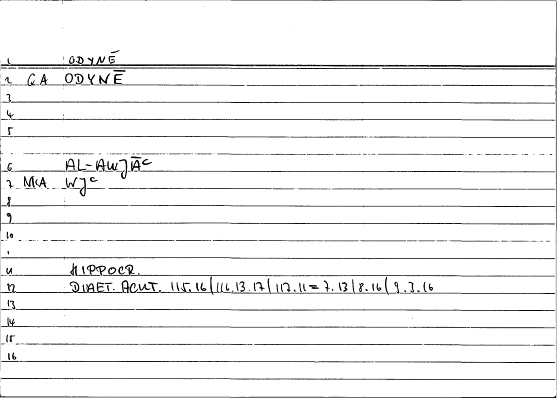 1 ODYNĒ
2 QA ODYNĒ
3
4
5
6 AL-AWJĀᶜ
7 NKA WJᶜ
8
9
10
11 HIPPOCR.
12 DIAET. ACUT. 115.16/116.13.17/117.11=7.13/8.16/9.3.16
13
14
15
16